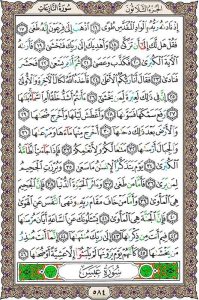 الجُزْءُ الثَّلَاثُونَ سُورَةُ النَّازِعَاتِ
إِذْ نَادَىٰهُ رَبُّهُۥ بِٱلْوَادِ ٱلْمُقَدَّسِ طُوًى ١٦ ٱذْهَبْ إِلَىٰ فِرْعَوْنَ إِنَّهُۥ طَغَىٰ ١٧
فَقُلْ هَل لَّكَ إِلَىٰٓ أَن تَزَكَّىٰ ١٨ وَأَهْدِيَكَ إِلَىٰ رَبِّكَ فَتَخْشَىٰ ١٩ فَأَرَىٰهُ
ٱلْـَٔايَةَ ٱلْكُبْرَىٰ ٢٠ فَكَذَّبَ وَعَصَىٰ ٢١ ثُمَّ أَدْبَرَ يَسْعَىٰ ٢٢ فَحَشَرَ
فَنَادَىٰ ٢٣ فَقَالَ أَنَا۠ رَبُّكُمُ ٱلْأَعْلَىٰ ٢٤ فَأَخَذَهُ ٱللَّهُ نَكَالَ ٱلْـَٔاخِرَةِ وَٱلْأُولَىٰٓ ٢٥
إِنَّ فِى ذَٰلِكَ لَعِبْرَةً لِّمَن يَخْشَىٰٓ ٢٦ ءَأَنتُمْ أَشَدُّ خَلْقًا أَمِ ٱلسَّمَآءُ بَنَىٰهَا ٢٧
رَفَعَ سَمْكَهَا فَسَوَّىٰهَا ٢٨ وَأَغْطَشَ لَيْلَهَا وَأَخْرَجَ ضُحَىٰهَا ٢٩
وَٱلْأَرْضَ بَعْدَ ذَٰلِكَ دَحَىٰهَآ ٣٠ أَخْرَجَ مِنْهَا مَآءَهَا وَمَرْعَىٰهَا ٣١ وَٱلْجِبَالَ
أَرْسَىٰهَا ٣٢ مَتَٰعًا لَّكُمْ وَلِأَنْعَٰمِكُمْ ٣٣ فَإِذَا جَآءَتِ ٱلطَّآمَّةُ
ٱلْكُبْرَىٰ ٣٤ يَوْمَ يَتَذَكَّرُ ٱلْإِنسَٰنُ مَا سَعَىٰ ٣٥ وَبُرِّزَتِ ٱلْجَحِيمُ
لِمَن يَرَىٰ ٣٦ فَأَمَّا مَن طَغَىٰ ٣٧ وَءَاثَرَ ٱلْحَيَوٰةَ ٱلدُّنْيَا ٣٨ فَإِنَّ ٱلْجَحِيمَ
هِىَ ٱلْمَأْوَىٰ ٣٩ وَأَمَّا مَنْ خَافَ مَقَامَ رَبِّهِۦ وَنَهَى ٱلنَّفْسَ عَنِ ٱلْهَوَىٰ ٤٠
فَإِنَّ ٱلْجَنَّةَ هِىَ ٱلْمَأْوَىٰ ٤١ يَسْـَٔلُونَكَ عَنِ ٱلسَّاعَةِ أَيَّانَ مُرْسَىٰهَا
٤٢ فِيمَ أَنتَ مِن ذِكْرَىٰهَآ ٤٣ إِلَىٰ رَبِّكَ مُنتَهَىٰهَآ ٤٤ إِنَّمَآ أَنتَ مُنذِرُ
مَن يَخْشَىٰهَا ٤٥ كَأَنَّهُمْ يَوْمَ يَرَوْنَهَا لَمْ يَلْبَثُوٓا۟ إِلَّا عَشِيَّةً أَوْ ضُحَىٰهَا ٤٦
سُورَةُ عَبَسَ
٥٨٤